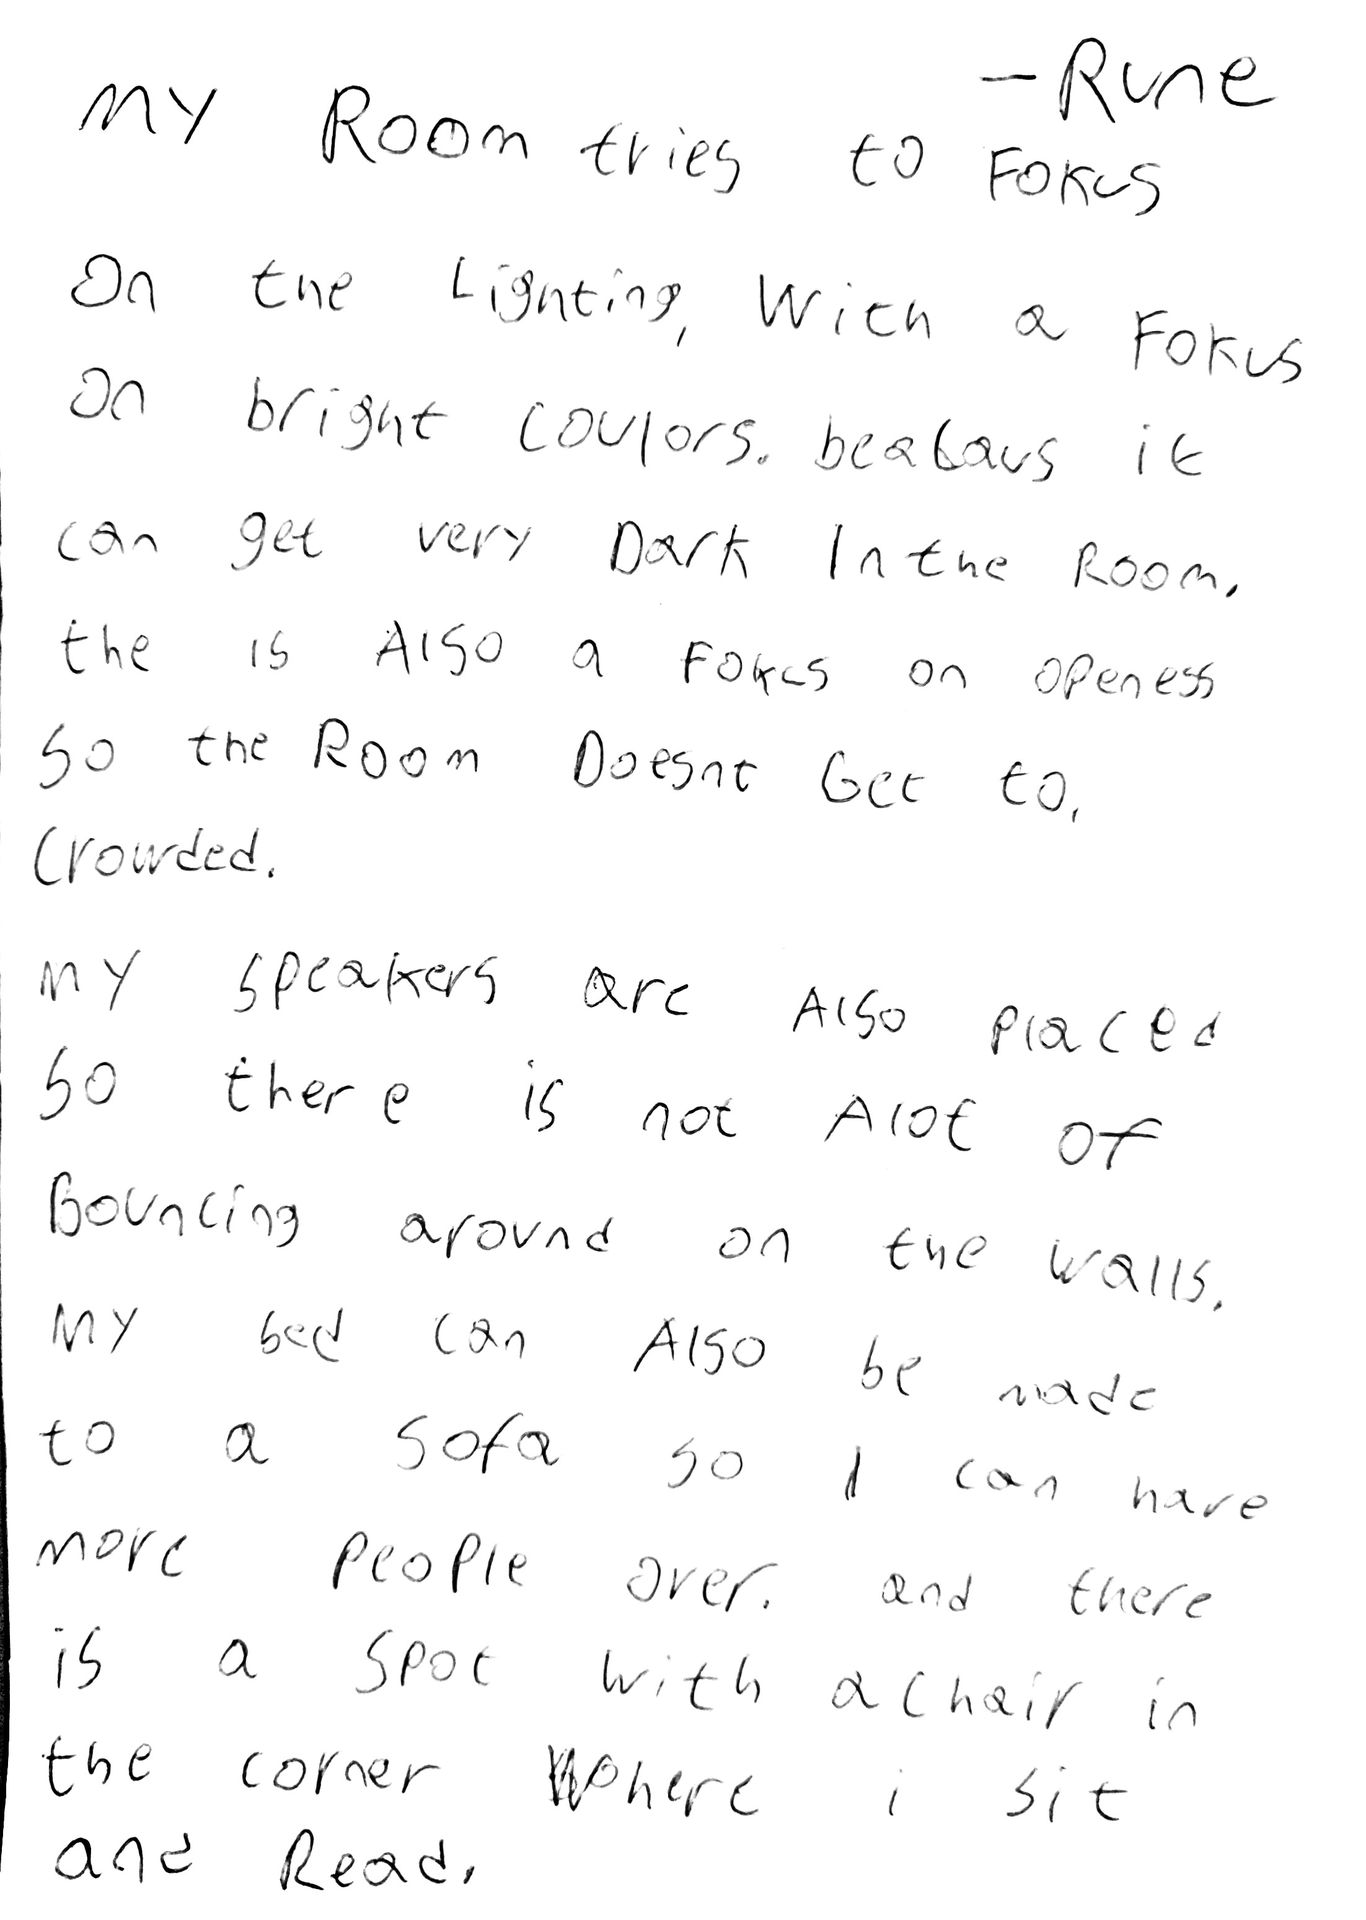 -Rune
MY Room tries to Fokus
On the Lighting, With a Fokus
On bright Coulors. beabaus it
can get very Dark In the Room.
the is Also a Fokus on openess
so the Room Doesnt Get to,
Crowded.
MY speakers are Also placed
so there is not Alot of
Bouncing around on the walls.
MY bed can Also be made
to a sofa so I can have
more people over. and there
is a spot with a Chair in
the corner Where i sit
and Read.